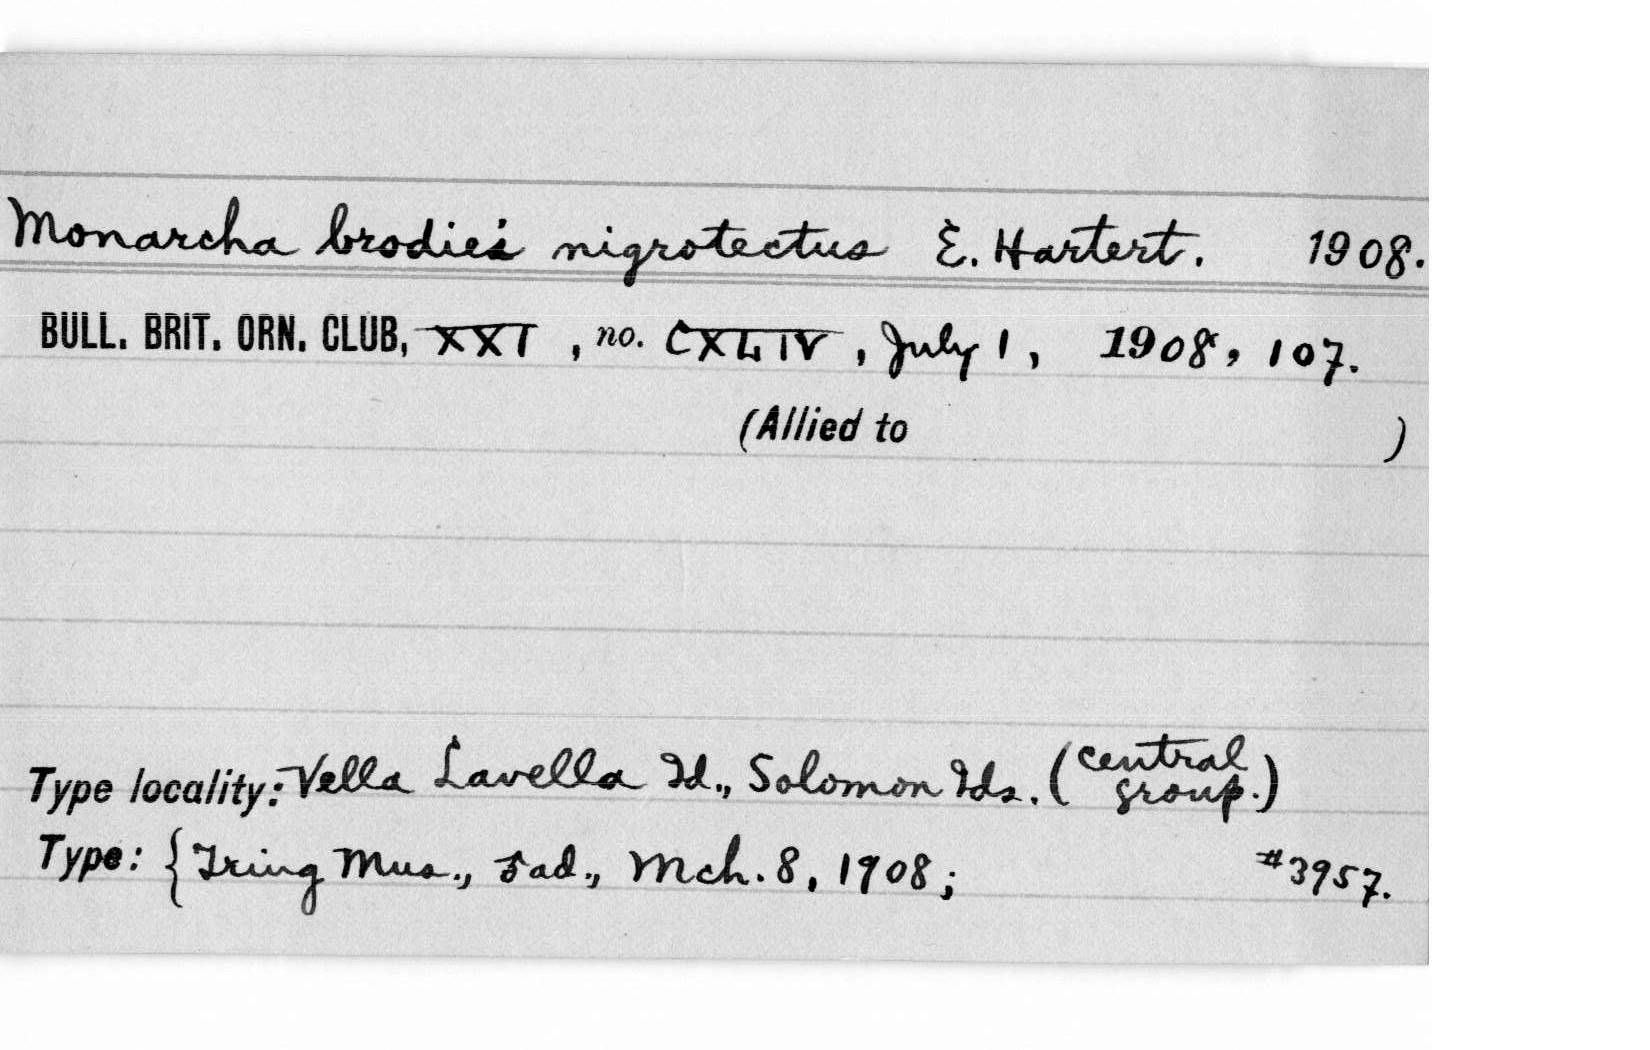 Monarcha brodiei nigrotectus E. Hartert. 1908.
BULL. BRIT. ORN. CLUB, XXI, no. CXLIV, July 1, 1908, 107.
(Allied to )
Type locality: Vella Lavella Id., Solomon Ids. (central group.)
Type: {Tring Mus., ad., Mch. 8, 1908; #3957.